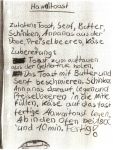 Hawaiitoast
Zutaten: Toast, Senf, Butter,
Schinken, Ananas aus der
Dose, Preiselbeeren, Käse
Zubereitung:
Toast zum auftauen
aus der Gefriertruhe holen.
Das Toast mit Butter und
Senf beschmieren. Schinken
Ananas darauf legen und
Preiselbeeren in die Mitte
füllen, Käse auf das fast
fertige Hawaiitoast legen.
Ab in den Ofen bei 180C
und 10min. Fertig!